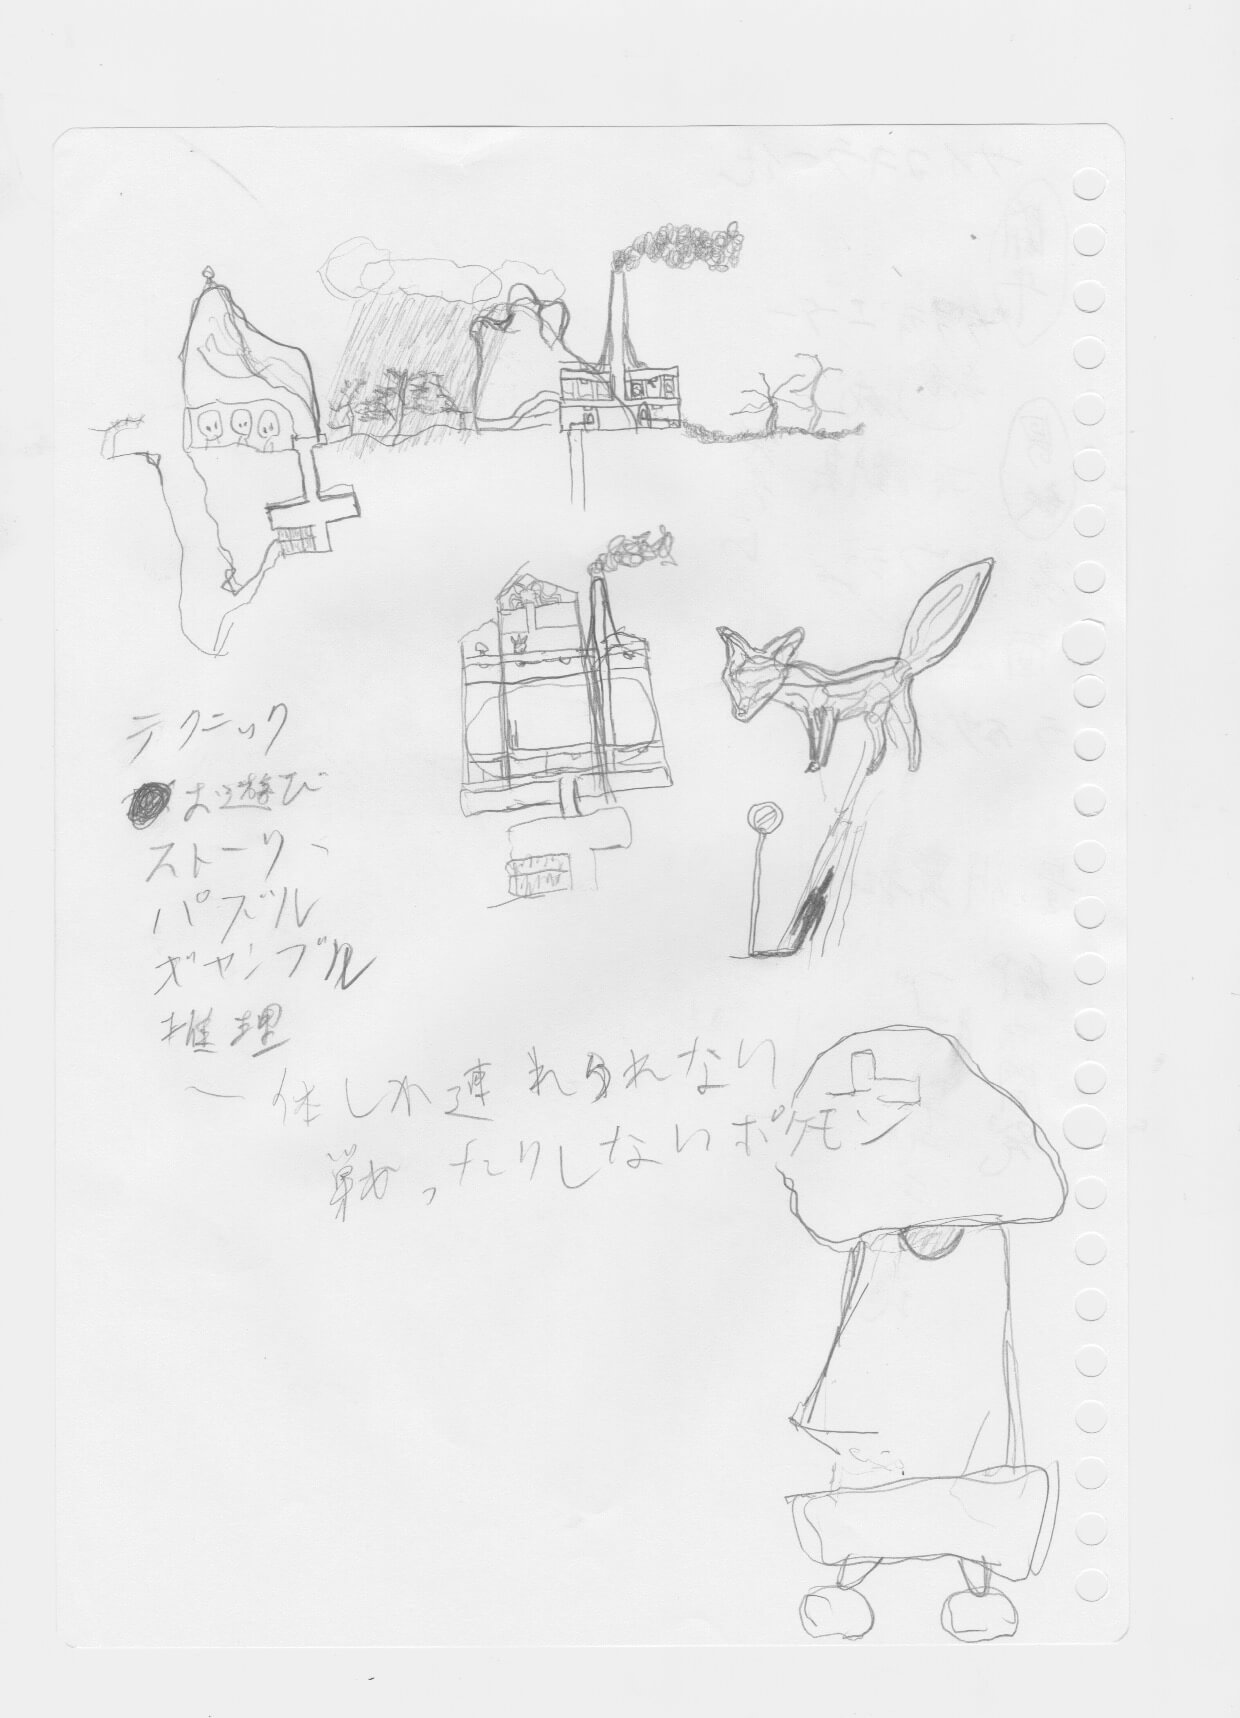 テクニック
お遊び
ストーリー
パズル
ギャンブル
推理
一体しか連れられない
戦ったりしないポケモン